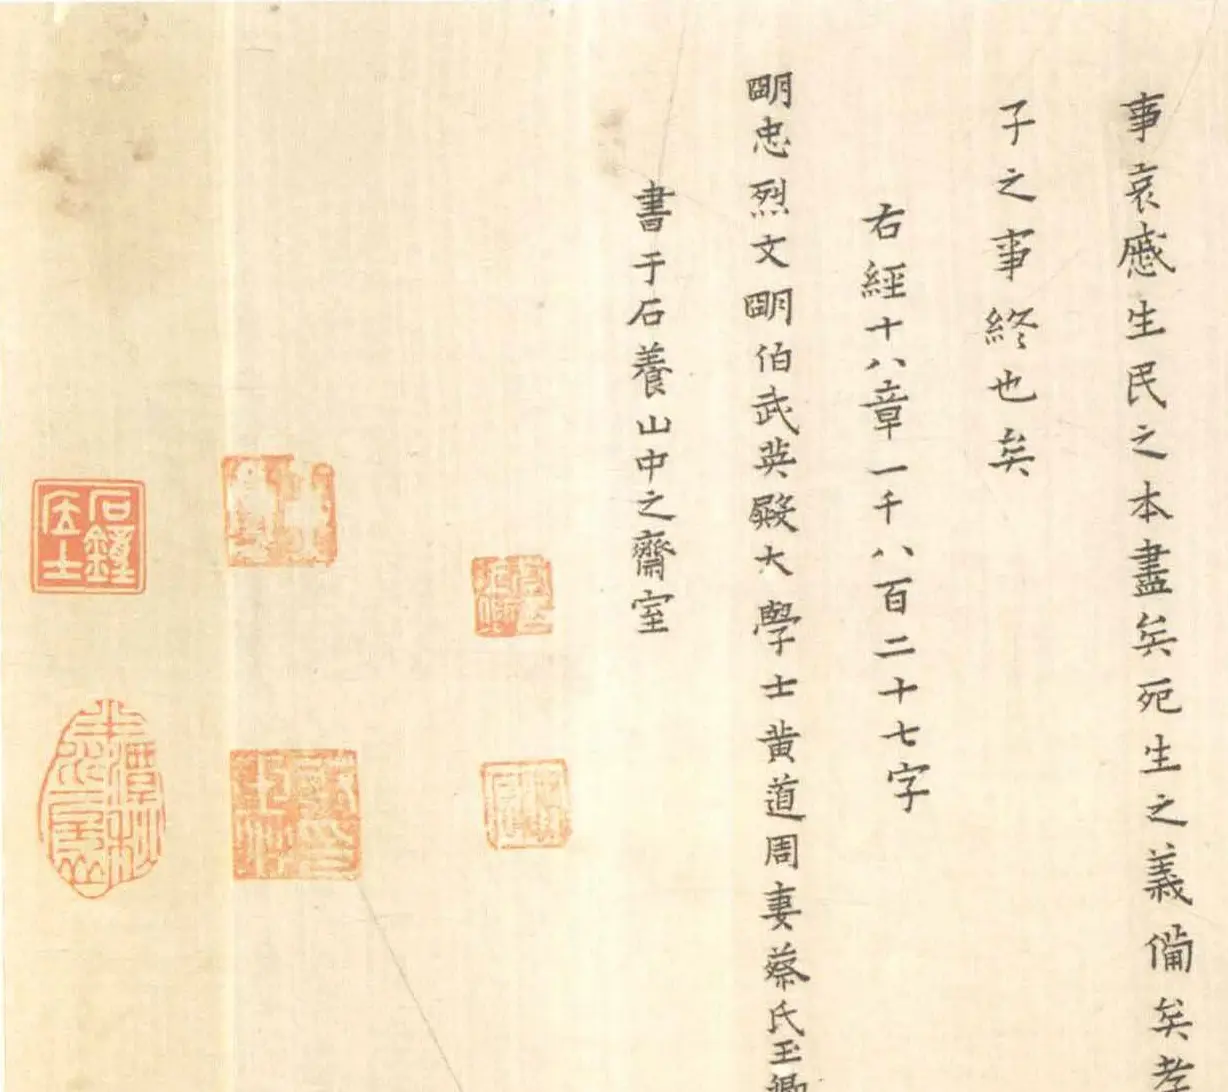 事哀慼生民之本盡矣死生之義備矣孝
子之事終也矣
右經十八章一千八百二十七字
朙忠烈文朙伯武英殿大學士黄道周妻蔡氏玉卿
書于石養山中之齋室
石鐘